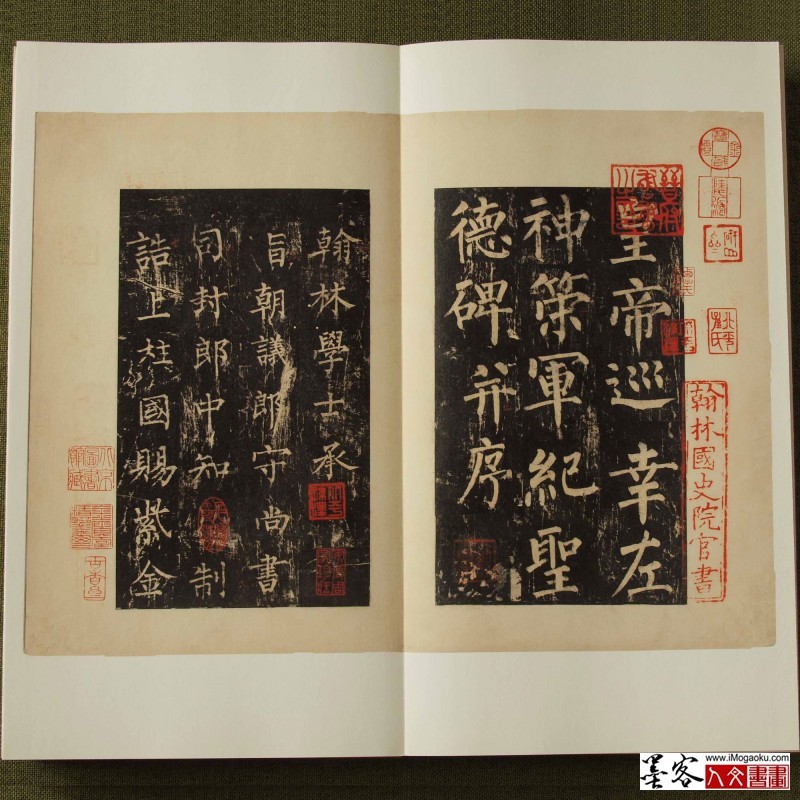 皇帝巡幸左
神策軍紀聖
德碑并序
翰林國史院官書
翰林學士承
旨朝議郎守尚書
司封郎中知制
誥上柱國賜紫金
www.iMogaoku.com
墨客人文書畫